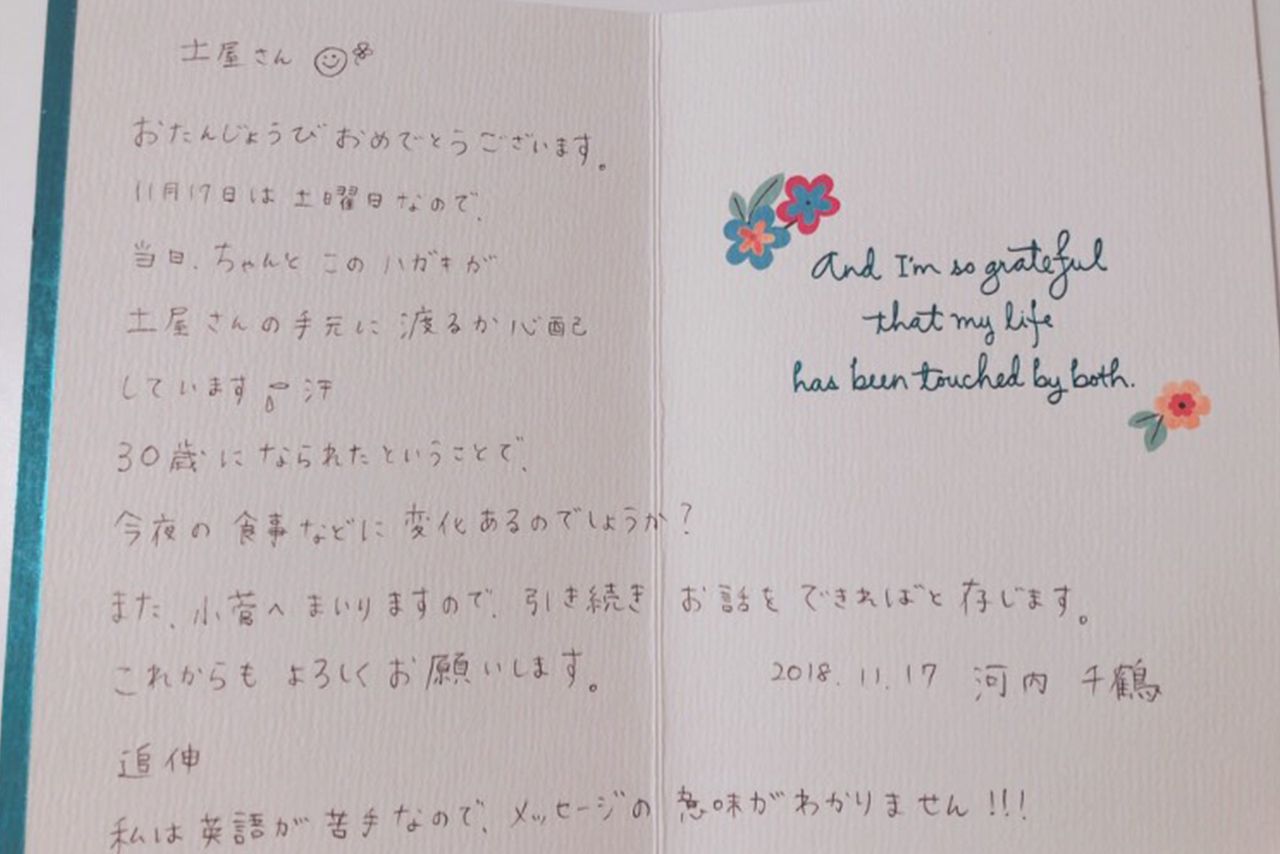 土屋さん
おたんじょうびおめでとうございます。
11月17日は土曜日なので、
当日、ちゃんとこのハガキが
土屋さんの手元に渡るか心配
しています 汗
30歳になられたということで、
今夜の食事などに変化あるのでしょうか?
また、小菅へまいりますので、引き続きお話をできればと存じます。
これからもよろしくお願いします。
2018.11.17 河内 千鶴
追伸
私は英語が苦手なので、メッセージの意味がわかりません!!!
And I'm so grateful
that my life
has been touched by both.